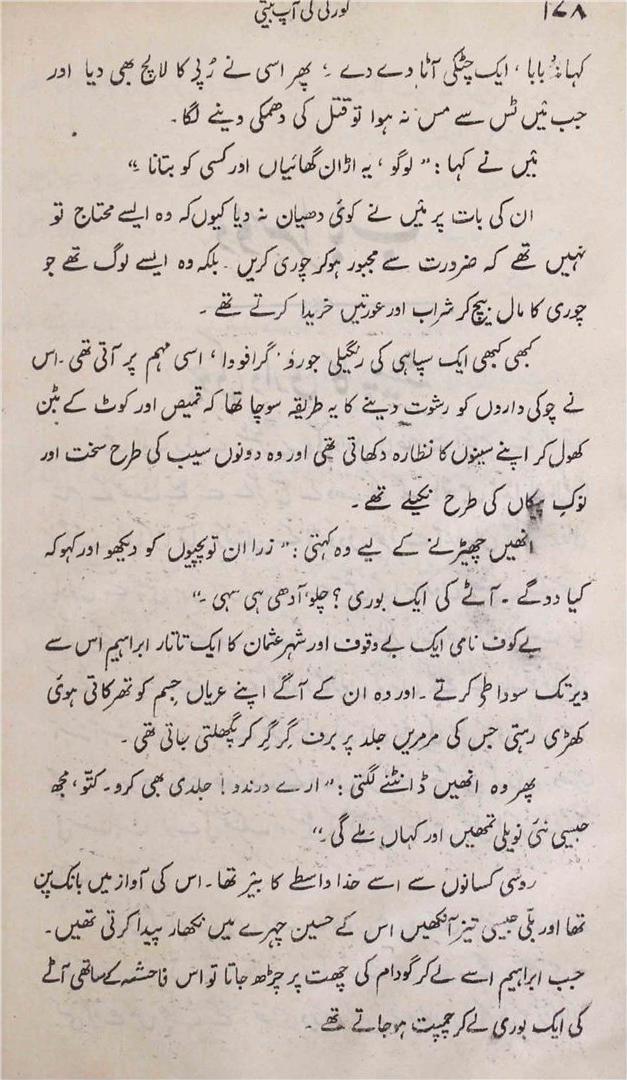 ۱۷۸ گورکی کی آپ بیتی
کہا: "بابا، ایک چٹکی آٹا دے دے۔" پھر اسی نے رُپئی کا لالچ بھی دیا اور
جب میں ٹس سے مس نہ ہوا تو قتل کی دھمکی دینے لگا۔
میں نے کہا: "لوگو، یہ اڑان گھائیاں اور کسی کو بتانا۔"
ان کی بات پر میں نے کوئی دھیان نہ دیا کیوں کہ وہ ایسے محتاج تو
نہیں تھے کہ ضرورت سے مجبور ہو کر چوری کریں۔ بلکہ وہ ایسے لوگ تھے جو
چوری کا مال بیچ کر شراب اور عورتیں خریدا کرتے تھے۔
کبھی کبھی ایک سپاہی کی رنگیلی جورو 'گرافودا' اسی مہم پر آتی تھی۔ اس
نے چوکی داروں کو رشوت دینے کا یہ طریقہ سوچا تھا کہ قمیص اور کوٹ کے بٹن
کھول کر اپنے سینوں کا نظارہ دکھاتی تھی اور وہ دونوں سیب کی طرح سخت اور
نوکِ پیکاں کی طرح نکیلے تھے۔
انھیں چھیڑنے کے لیے وہ کہتی: "زرا ان توپچیوں کو دیکھو اور کہو کہ
کیا دوگے۔ آٹے کی ایک بوری؟ چلو، آدھی ہی سہی۔"
بے کوف نامی ایک بے وقوف اور شہر عثمان کا ایک تاتار ابراہیم اس سے
دیر تک سودا طی کرتے۔ اور وہ ان کے آگے اپنے عریاں جسم کو تھرکاتی ہوئی
کھڑی رہتی جس کی مرمریں جلد پر برف گِر گِر کر پگھلتی جاتی تھی۔
پھر وہ انھیں ڈانٹنے لگتی: "ارے درندو! جلدی بھی کرو۔ کتّو، مجھ
جیسی نئی نویلی تمھیں اور کہاں ملے گی۔"
روسی کسانوں سے اسے خدا واسطے کا بیر تھا۔ اس کی آواز میں بانک پن
تھا اور بلّی جیسی تیز آنکھیں اس کے حسین چہرے میں نکھار پیدا کرتی تھیں۔
جب ابراہیم اسے لے کر گودام کی چھت پر چڑھ جاتا تو اس فاحشہ کے ساتھی آٹے
کی ایک بوری لے کر چمپت ہو جاتے تھے۔